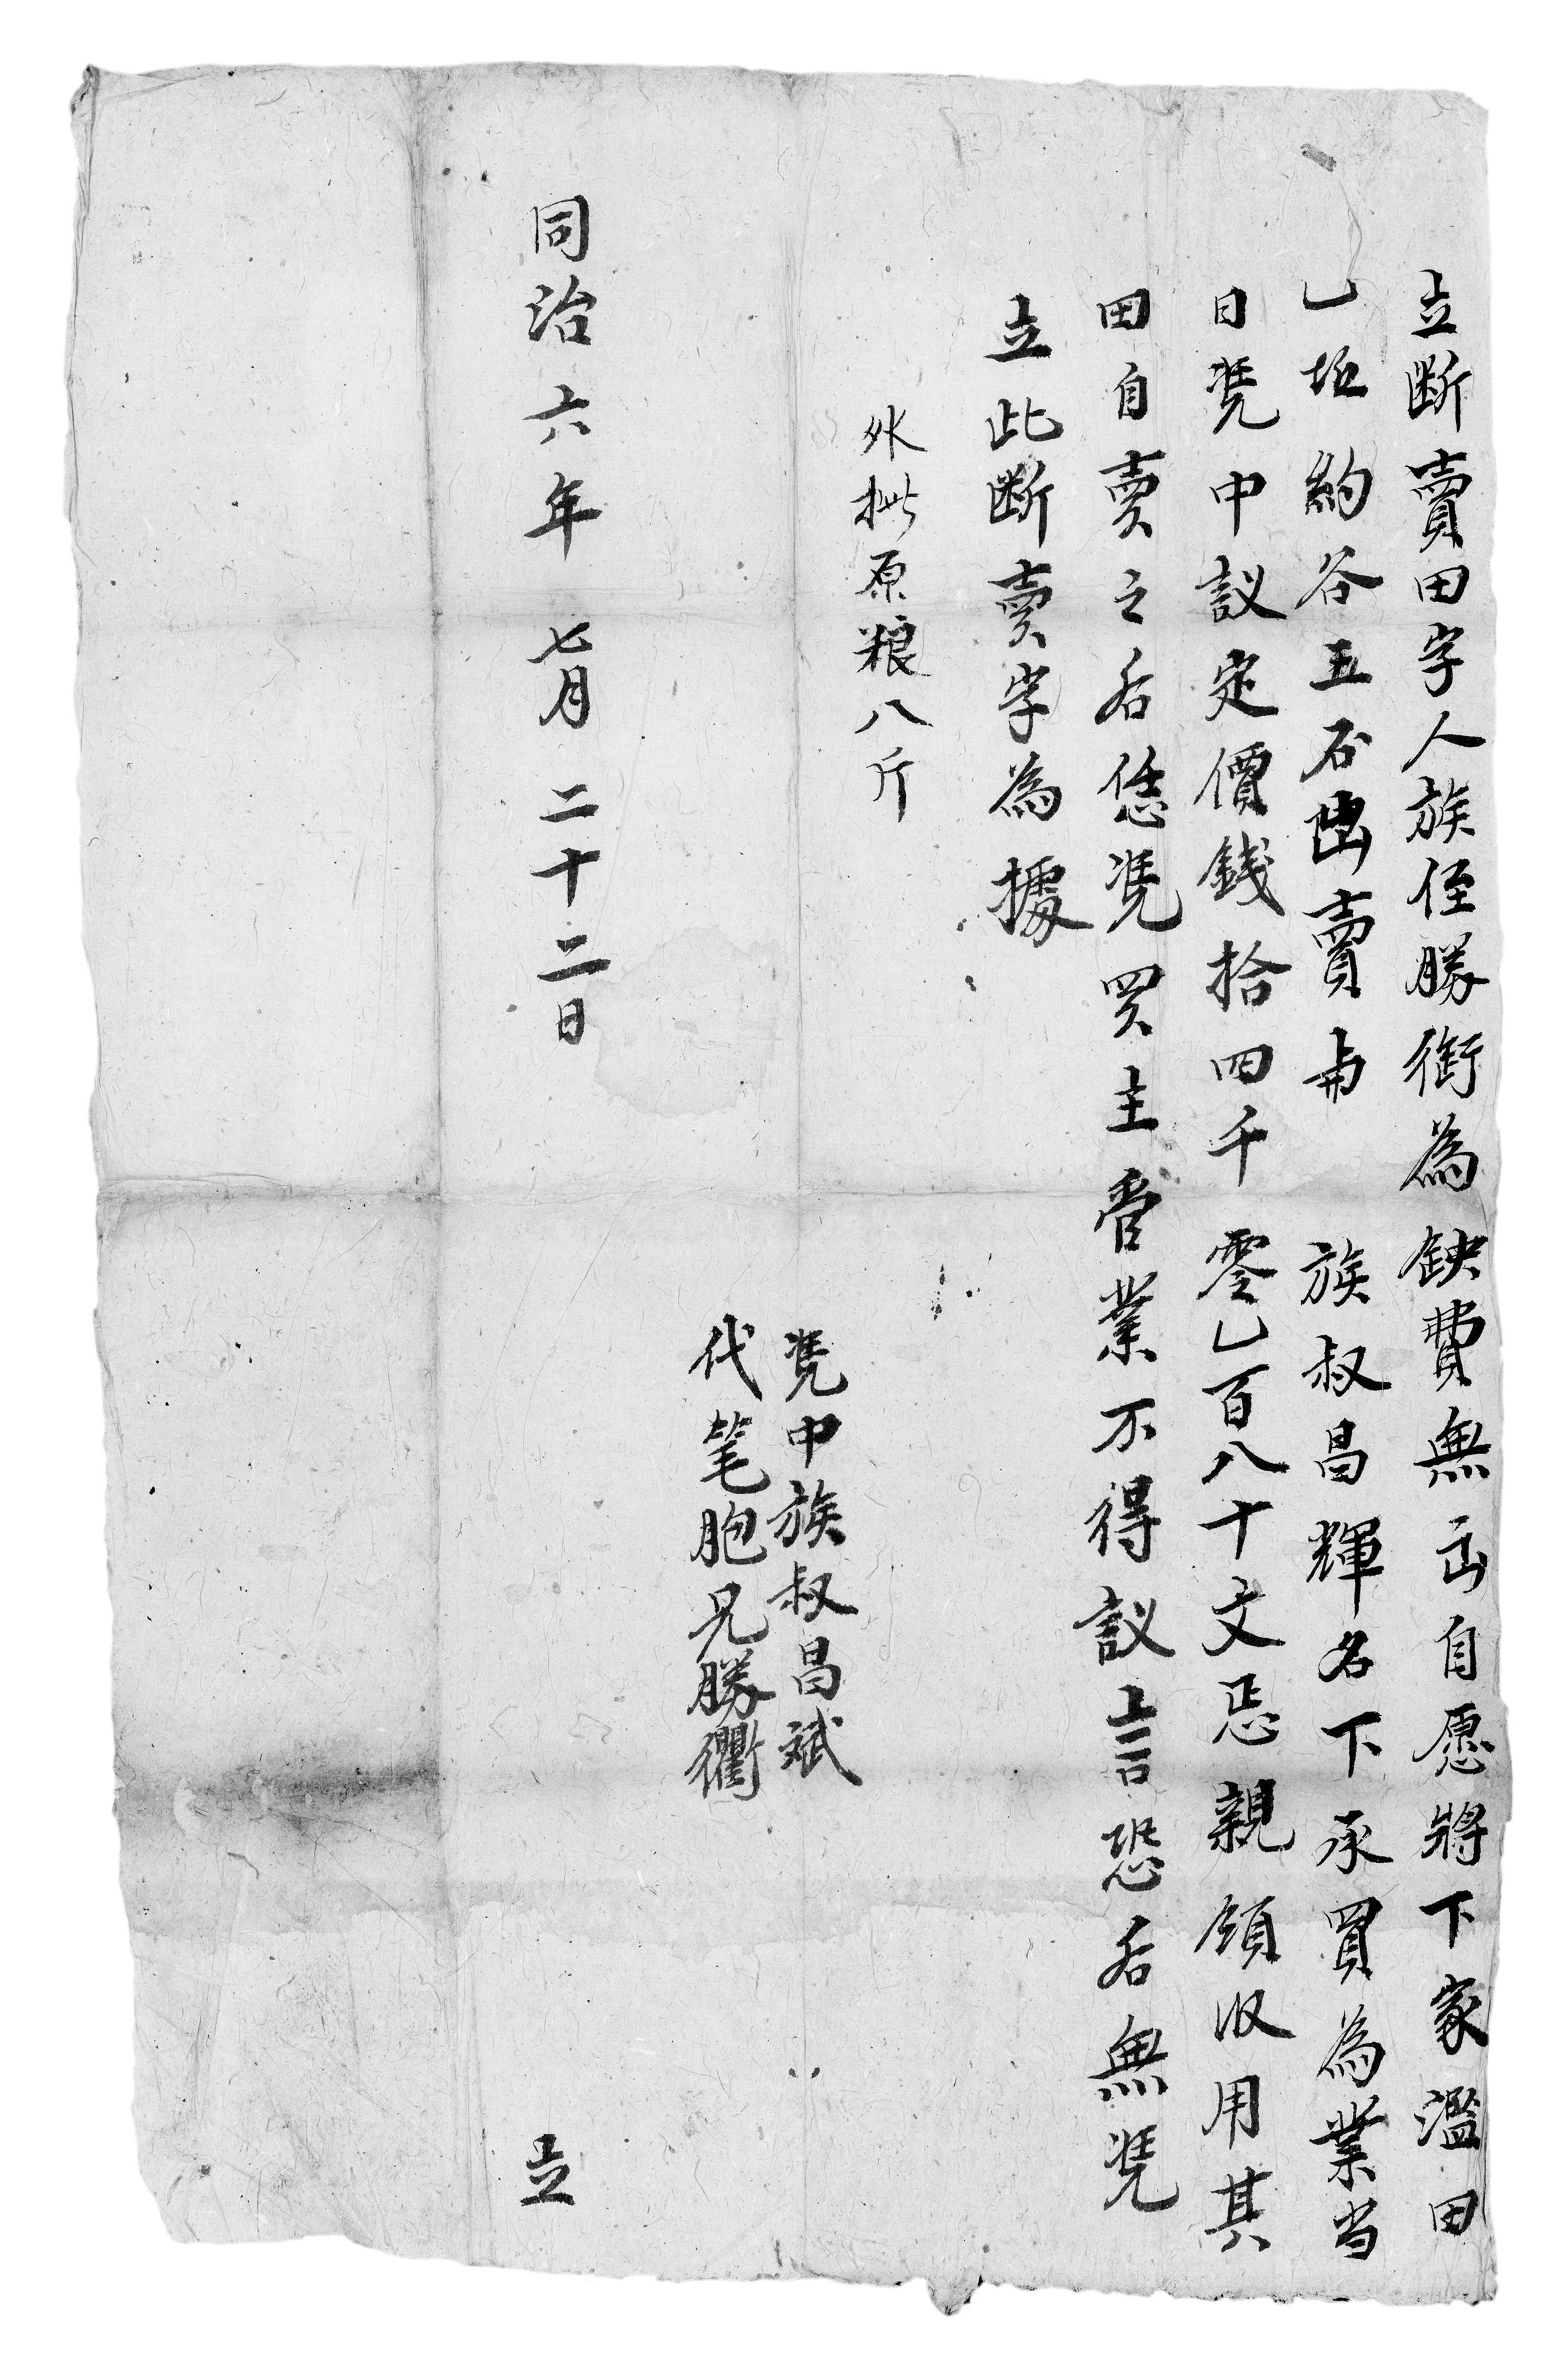 立断賣田字人族侄勝衔為缺費無出自愿將下家濫田
乚坵約谷五石出賣與族叔昌輝名下承買為業当
日凴中議定價錢拾四千零乚百八十文亲親領收用其
田自賣之后恁凴買主管業不得議言恐后無凴
立此断賣字為據
外批原粮八斤
凴中族叔昌斌
代笔胞兄勝衢
同治六年七月二十二日立